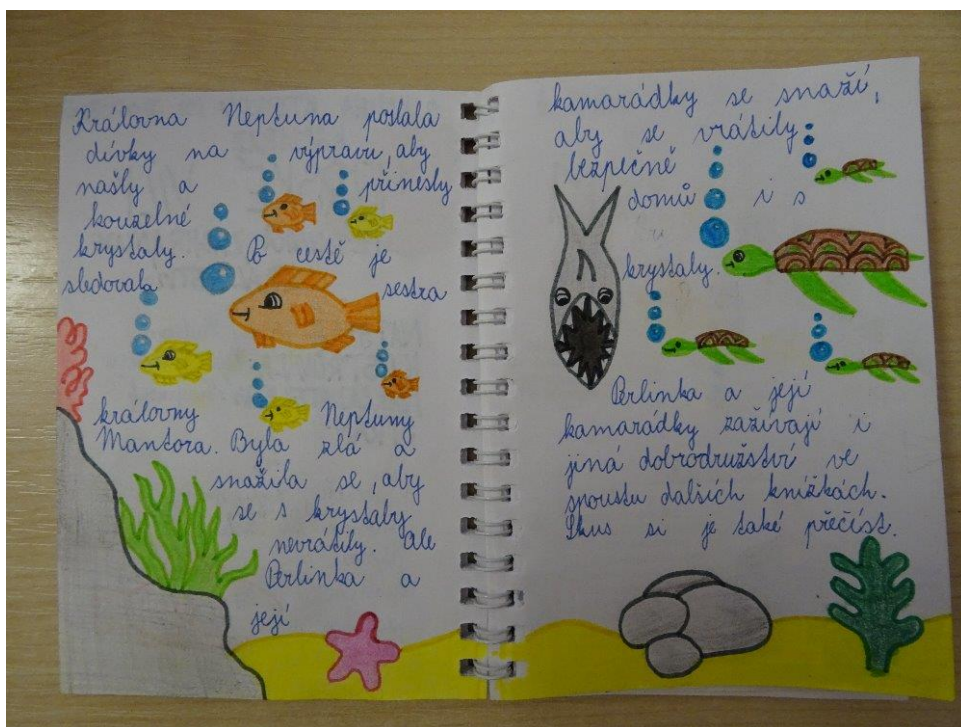 Královna Neptuna poslala
dívky na výpravu, aby
našly a přinesly
kouzelné
krystaly. Po cestě je
sledovala sestra
královny Neptuny
Mantora. Byla zlá a
snažila se, aby
se s krystaly
nevrátily. Ale
Perlinka a
její
kamarádky se snaží,
aby se vrátily
bezpečně
domů i s
krystaly.
Perlinka a její
kamarádky zažívají i
jiná dobrodružství ve
spoustu dalších knížkách.
Zkus si je také přečíst.